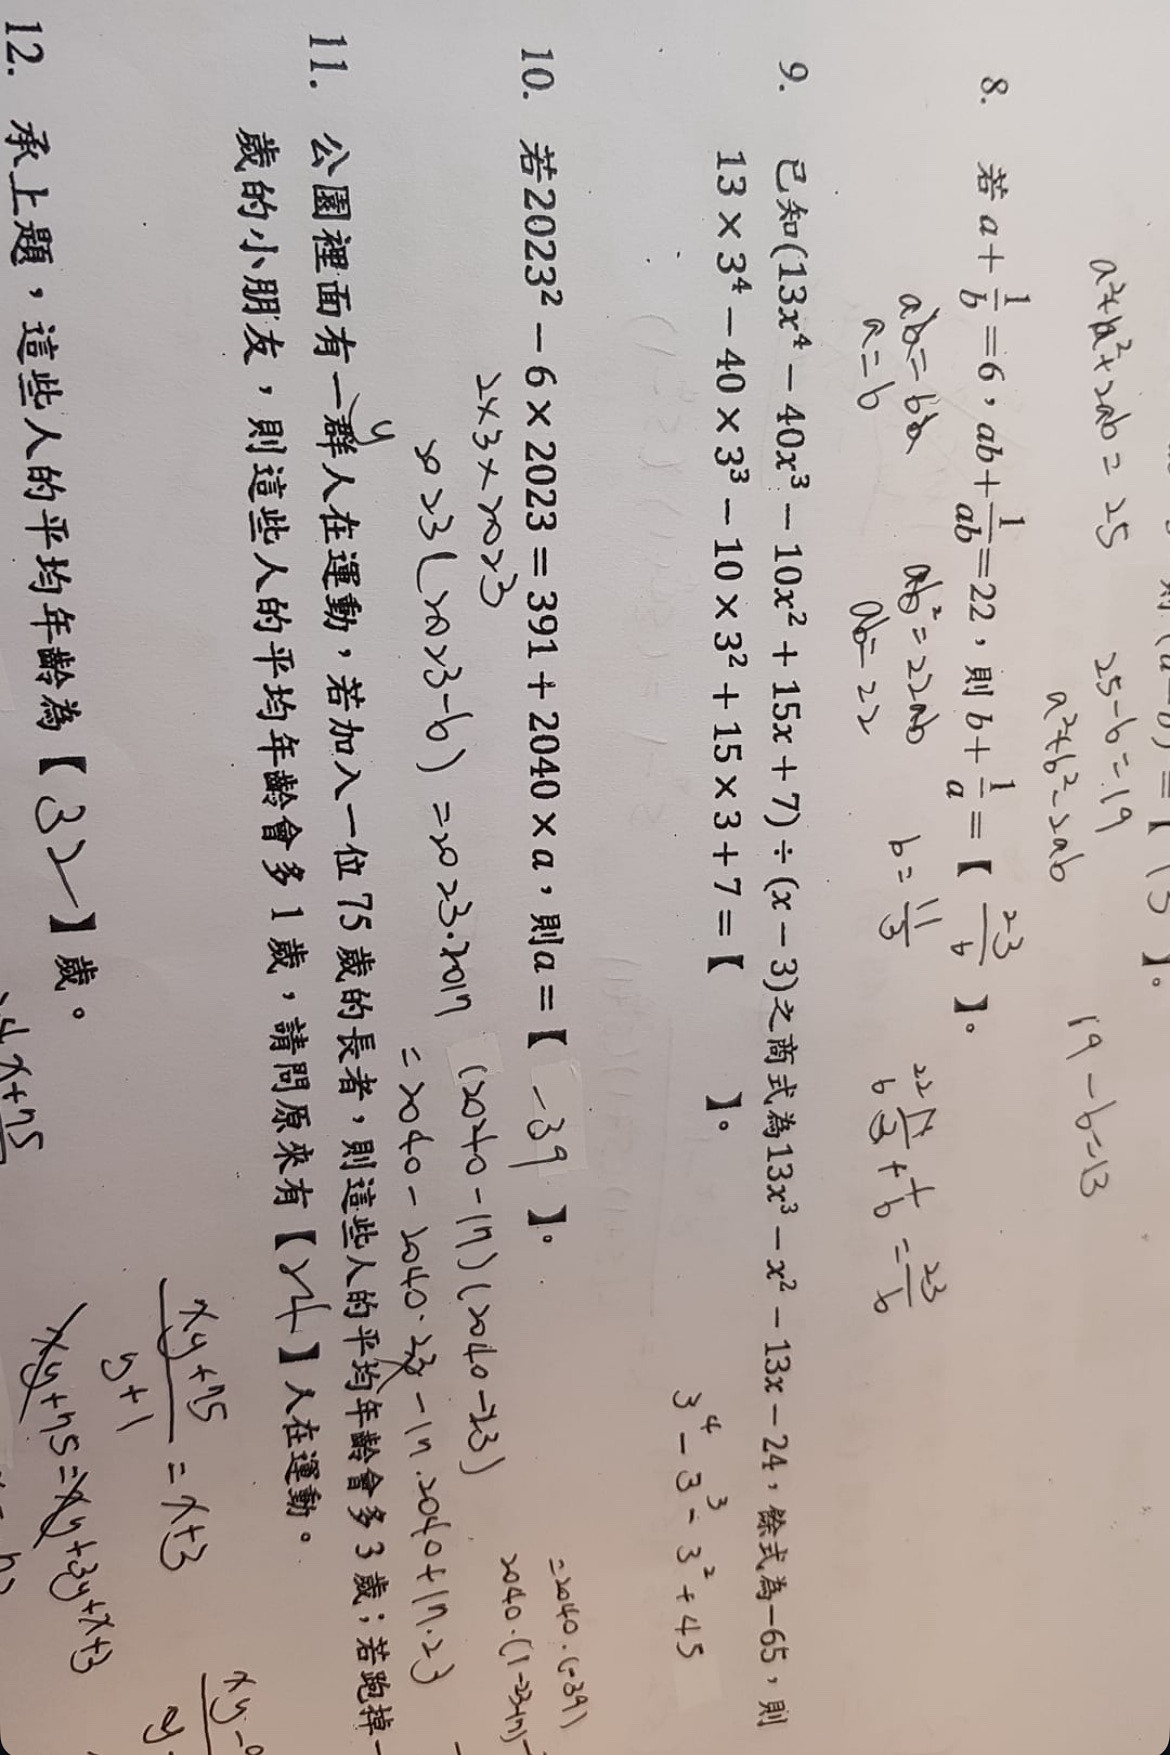 a²+b²+2ab=25
25-6=19
a²+b²-2ab
19-6=13
8. 若a+1/b=6,ab+1/ab=22,則b+1/a=【 23/6 】。
ab=6a
a=6
ab²=22ab
ab=22
b=11/3
9. 已知(13x⁴-40x³-10x²+15x+7)÷(x-3)之商式為13x³-x²-13x-24,餘式為-65,則
13×3⁴-40×3³-10×3²+15×3+7=【 】。
3⁴-3³-3²+45
10. 若2023²-6×2023=391+2040×a,則a=【 -39 】。
2×3×2023
(2040-17)(2040-23)
=2040·(-39)
2023(2023-6)=2023·2017
=2040-2040·23-17·2040+17·23
11. 公園裡面有一群人在運動,若加入一位75歲的長者,則這些人的平均年齡會多3歲;若跑掉一
y
歲的小朋友,則這些人的平均年齡會多1歲,請問原來有【24】人在運動。
xy+75/y+1=x+3
xy+75=xy+3y+x+3
12. 承上題,這些人的平均年齡為【32】歲。
x+75